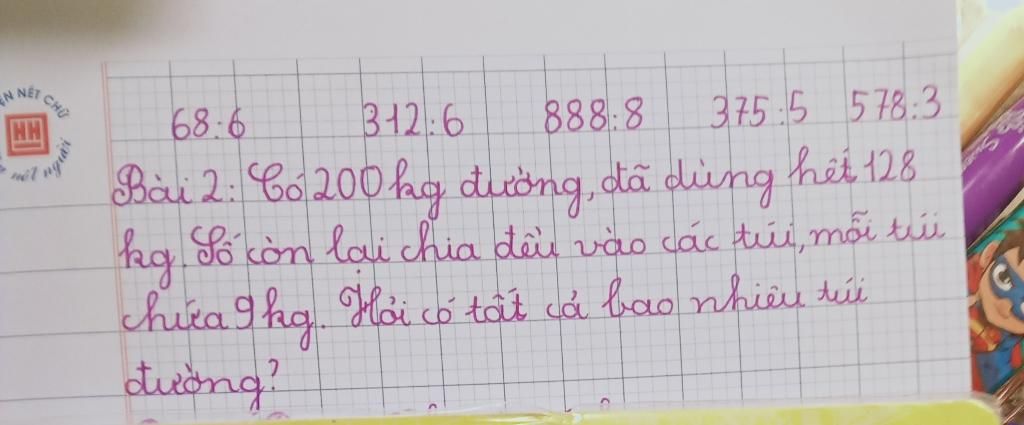 68:6 312:6 888:8 375:5 578:3
Bài 2: Có 200kg đường, đã dùng hết 128
kg. Số còn lại chia đều vào các túi, mỗi túi
chứa 9kg. Hỏi có tất cả bao nhiêu túi
đường?
NÉT CHỮ
HH
nét người